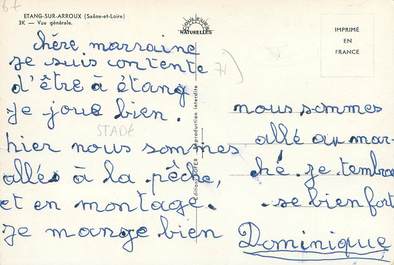 ETANG-SUR-ARROUX (Saône-et-Loire)
3K - Vue générale.
NATURELLES
IMPRIMÉ
EN
FRANCE
chère marraine
je suis contente
d'être à étang
je joue bien.
STADE
hier nous sommes
allés à la pêche,
et en montage.
je mange bien
nous sommes
allé au mar-
ché je tembras
se bien fort
Dominique